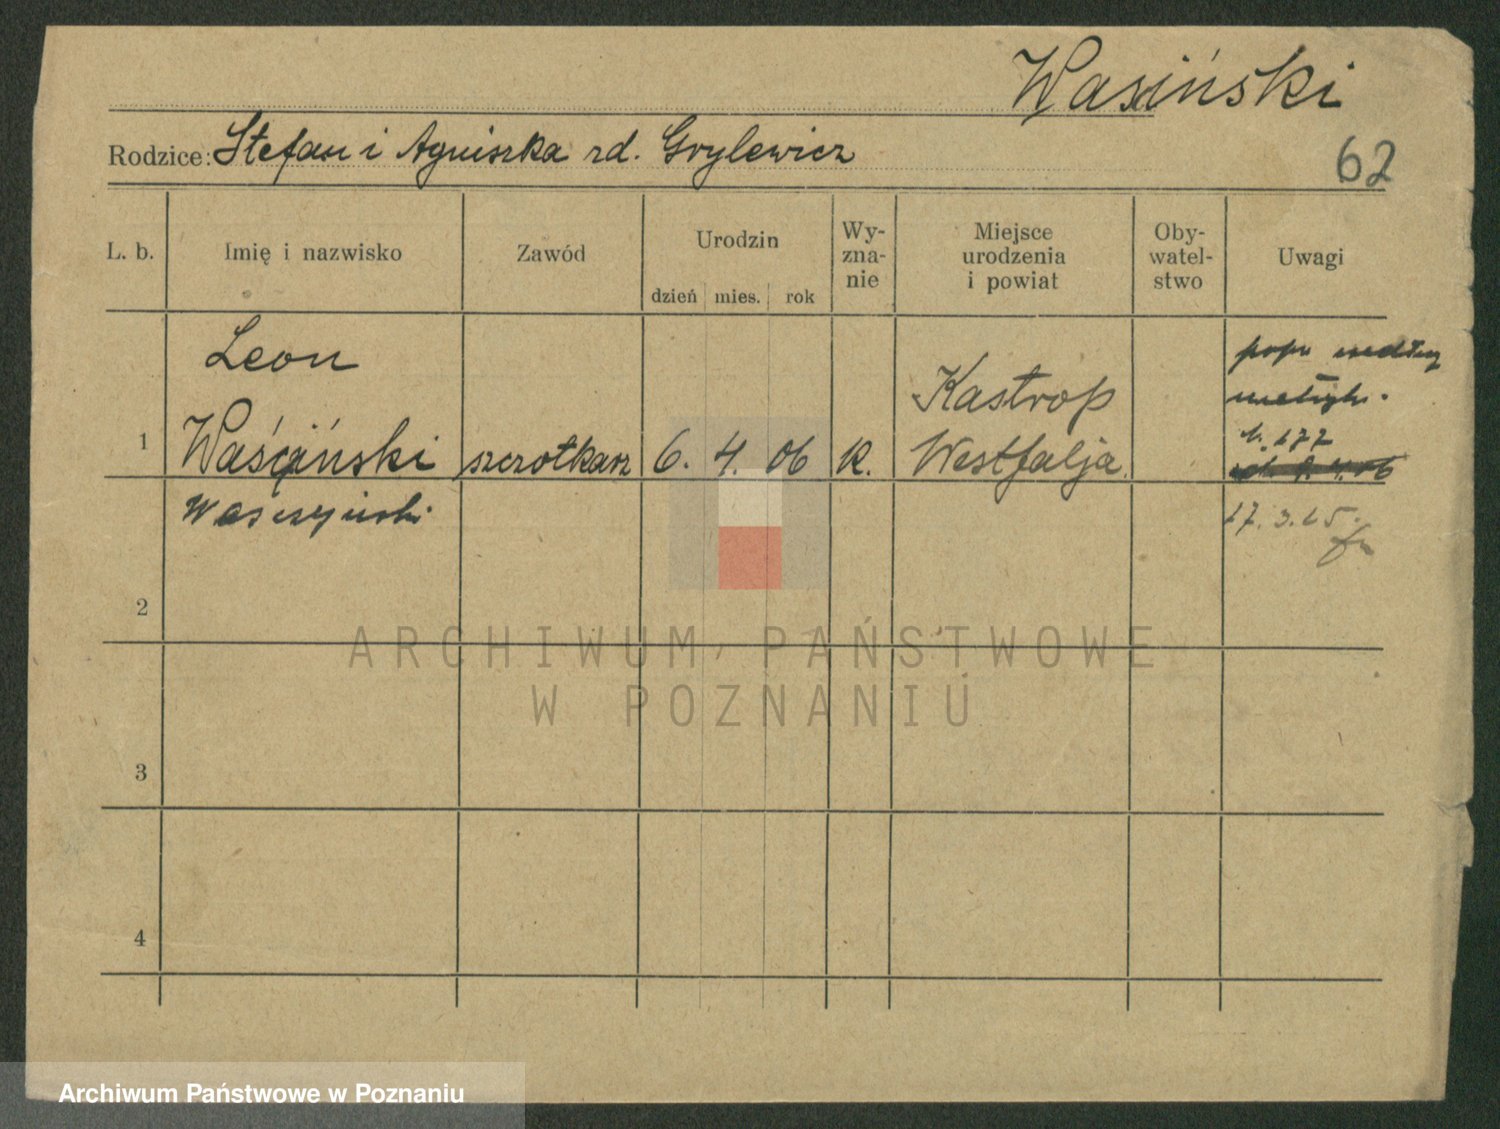 Wasiński
Rodzice: Stefan i Agnieszka zd. Grylewicz
62
L. b.
Imię i nazwisko
Zawód
Urodzin
dzień mies. rok
Wy-
zna-
nie
Miejsce
urodzenia
i powiat
Oby-
watel-
stwo
Uwagi
1
Leon
Waściński
Waszczyński
szczotkarz
6. 4. 06
K.
Kastrop
Westfalja
popr. według
metryk.
177
17.3.25.
2
3
4
ARCHIWUM PAŃSTWOWE
W POZNANIU
Archiwum Państwowe w Poznaniu